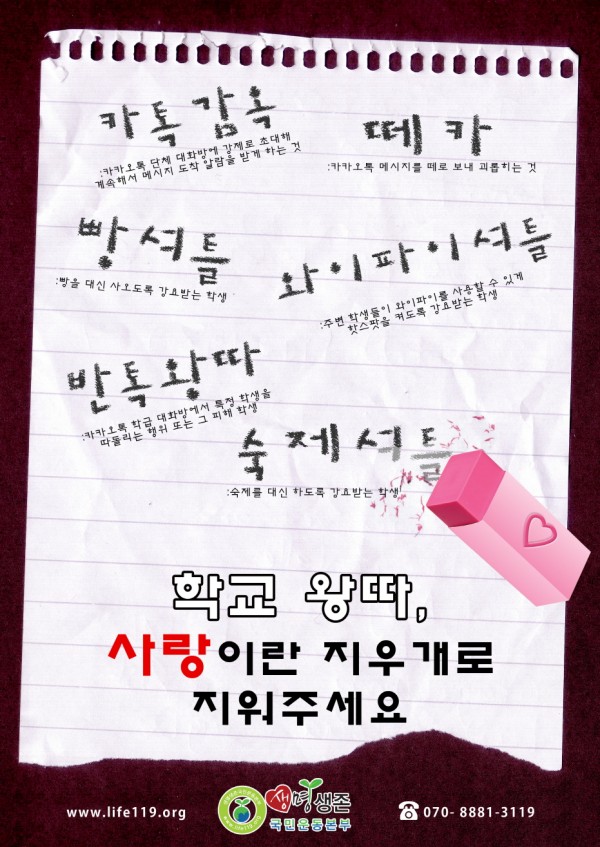 카톡감옥
:카카오톡 단체 대화방에 강제로 초대해
계속해서 메시지 도착 알람을 받게 하는 것
떼카
:카카오톡 메시지를 떼로 보내 괴롭히는 것
빵셔틀
:빵을 대신 사오도록 강요받는 학생
와이파이셔틀
:주변 학생들이 와이파이를 사용할 수 있게
핫스팟을 켜도록 강요받는 학생
반톡왕따
:카카오톡 학급 대화방에서 특정 학생을
따돌리는 행위 또는 그 피해 학생
숙제셔틀
:숙제를 대신 하도록 강요받는 학생
학교 왕따,
사랑이란 지우개로
지워주세요
www.life119.org
생명생존
국민운동본부
070- 8881-3119